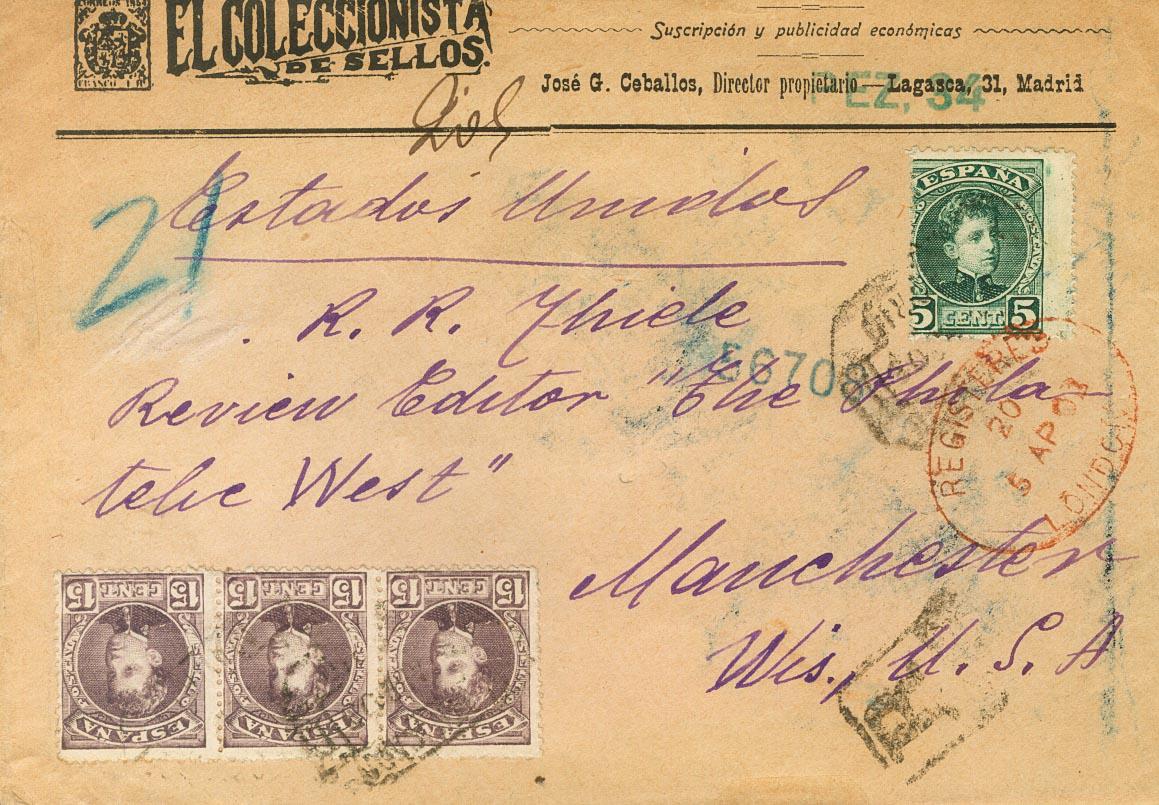 EL COLECCIONISTA
DE SELLOS.
Suscripción y publicidad económicas
José G. Ceballos, Director propietario — Lagasca, 31, Madrid
PEZ, 34
21
Estados Unidos
R. R. Thiele
Review Editor "The Phila-
telic West"
Manchester
Wis., U. S. A
ESPAÑA
5 CENT 5
5670
REGISTERED
20
5 AP 0
LONDON
R
15 CENT 15
ESPAÑA
15 CENT 15
ESPAÑA
15 CENT 15
ESPAÑA